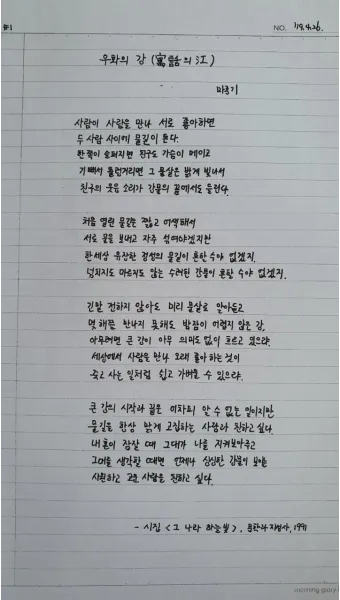 #1
NO. '19.4.26.
우화의 강 (寓話의 江)
마종기
사람이 사람을 만나 서로 좋아하면
두 사람 사이에 물길이 튼다.
한쪽이 슬퍼지면 친구도 가슴이 메이고
기뻐서 출렁거리면 그 물살은 밝게 빛나서
친구의 웃음 소리가 강물의 끝에서도 들린다.
처음 열린 물길은 짧고 어색해서
서로 물을 보내고 자주 섞여야겠지만
한세상 유장한 정성의 물길이 흔할 수야 없겠지.
넘치지도 마르지도 않는 수려한 강물이 흔할 수야 없겠지.
긴말 전하지 않아도 미리 물살로 알아듣고
몇 해쯤 만나지 못해도 밤잠이 어렵지 않은 강,
아무려면 큰 강이 아무 의미도 없이 흐르고 있으랴.
세상에서 사람을 만나 오래 좋아하는 것이
죽고 사는 일처럼 쉽고 가벼울 수 있으랴.
큰 강의 시작과 끝은 어차피 알 수 없는 일이지만
물길을 항상 맑게 고집하는 사람과 친하고 싶다.
내 혼이 잠잘 때 그대가 나를 지켜보아주고
그대를 생각할 때면 언제나 싱싱한 강물이 보이는
시원하고 고운 사람을 친하고 싶다.
- 시집 <그 나라 하늘빛>, 문학과지성사, 1991
morning glory